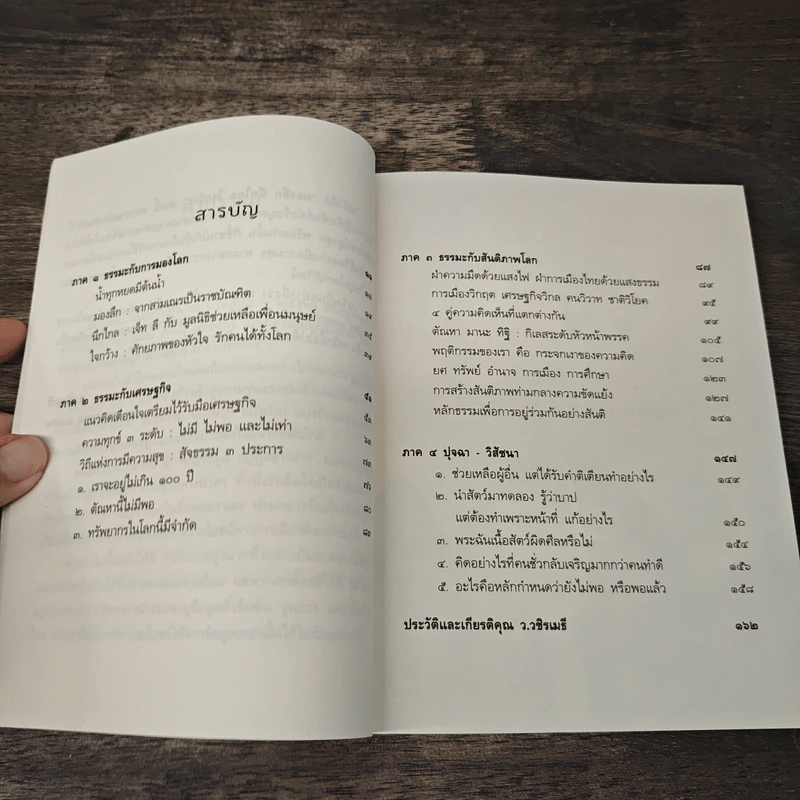 สารบัญ
ภาค ๑ ธรรมะกับการมองโลก
น้ำทุกหยดมีต้นน้ำ
มองลึก : จากสามเณรเป็นราชบัณฑิต
นึกไกล : เจ็ท ลี กับ มูลนิธิช่วยเหลือเพื่อนมนุษย์
ใจกว้าง : ศักยภาพของหัวใจ รักคนได้ทั้งโลก
ภาค ๒ ธรรมะกับเศรษฐกิจ
แนวคิดเตือนใจเตรียมไว้รับมือเศรษฐกิจ
ความทุกข์ ๓ ระดับ : ไม่มี ไม่พอ และไม่เท่า
วิถีแห่งการมีความสุข : สัจธรรม ๓ ประการ
๑. เราจะอยู่ไม่เกิน ๑๐๐ ปี ๗๓
๒. ตัณหานี้ไม่มีพอ ๗๖
๓. ทรัพยากรในโลกนี้มีจำกัด ๘๐
๘๓
ภาค ๓ ธรรมะกับสันติภาพโลก ๘๗
ฝ่าความมืดด้วยแสงไฟ ฝ่าการเมืองไทยด้วยแสงธรรม ๘๙
การเมืองวิกฤต เศรษฐกิจวิกล คนวิวาท ชาติวิโยค ๙๕
๔ คู่ความคิดเห็นที่แตกต่างกัน ๙๙
ตัณหา มานะ ทิฐิ : กิเลสระดับหัวหน้าพรรค ๑๐๕
พฤติกรรมของเรา คือ กระจกเงาของความคิด ๑๐๗
ยศ ทรัพย์ อำนาจ การเมือง การศึกษา ๑๒๓
การสร้างสันติภาพท่ามกลางความขัดแย้ง ๑๒๗
หลักธรรมเพื่อการอยู่ร่วมกันอย่างสันติ ๑๔๑
ภาค ๔ ปุจฉา - วิสัชนา ๑๔๗
๑. ช่วยเหลือผู้อื่น แต่ได้รับคำติเตียนทำอย่างไร ๑๔๙
๒. นำสัตว์มาทดลอง รู้ว่าบาป
แต่ต้องทำเพราะหน้าที่ แก้อย่างไร ๑๕๐
๓. พระฉันเนื้อสัตว์ผิดศีลหรือไม่ ๑๕๔
๔. คิดอย่างไรที่คนชั่วกลับเจริญมากกว่าคนทำดี ๑๕๖
๕. อะไรคือหลักกำหนดว่ายังไม่พอ หรือพอแล้ว ๑๕๘
ประวัติและเกียรติคุณ ว.วชิรเมธี ๑๖๒